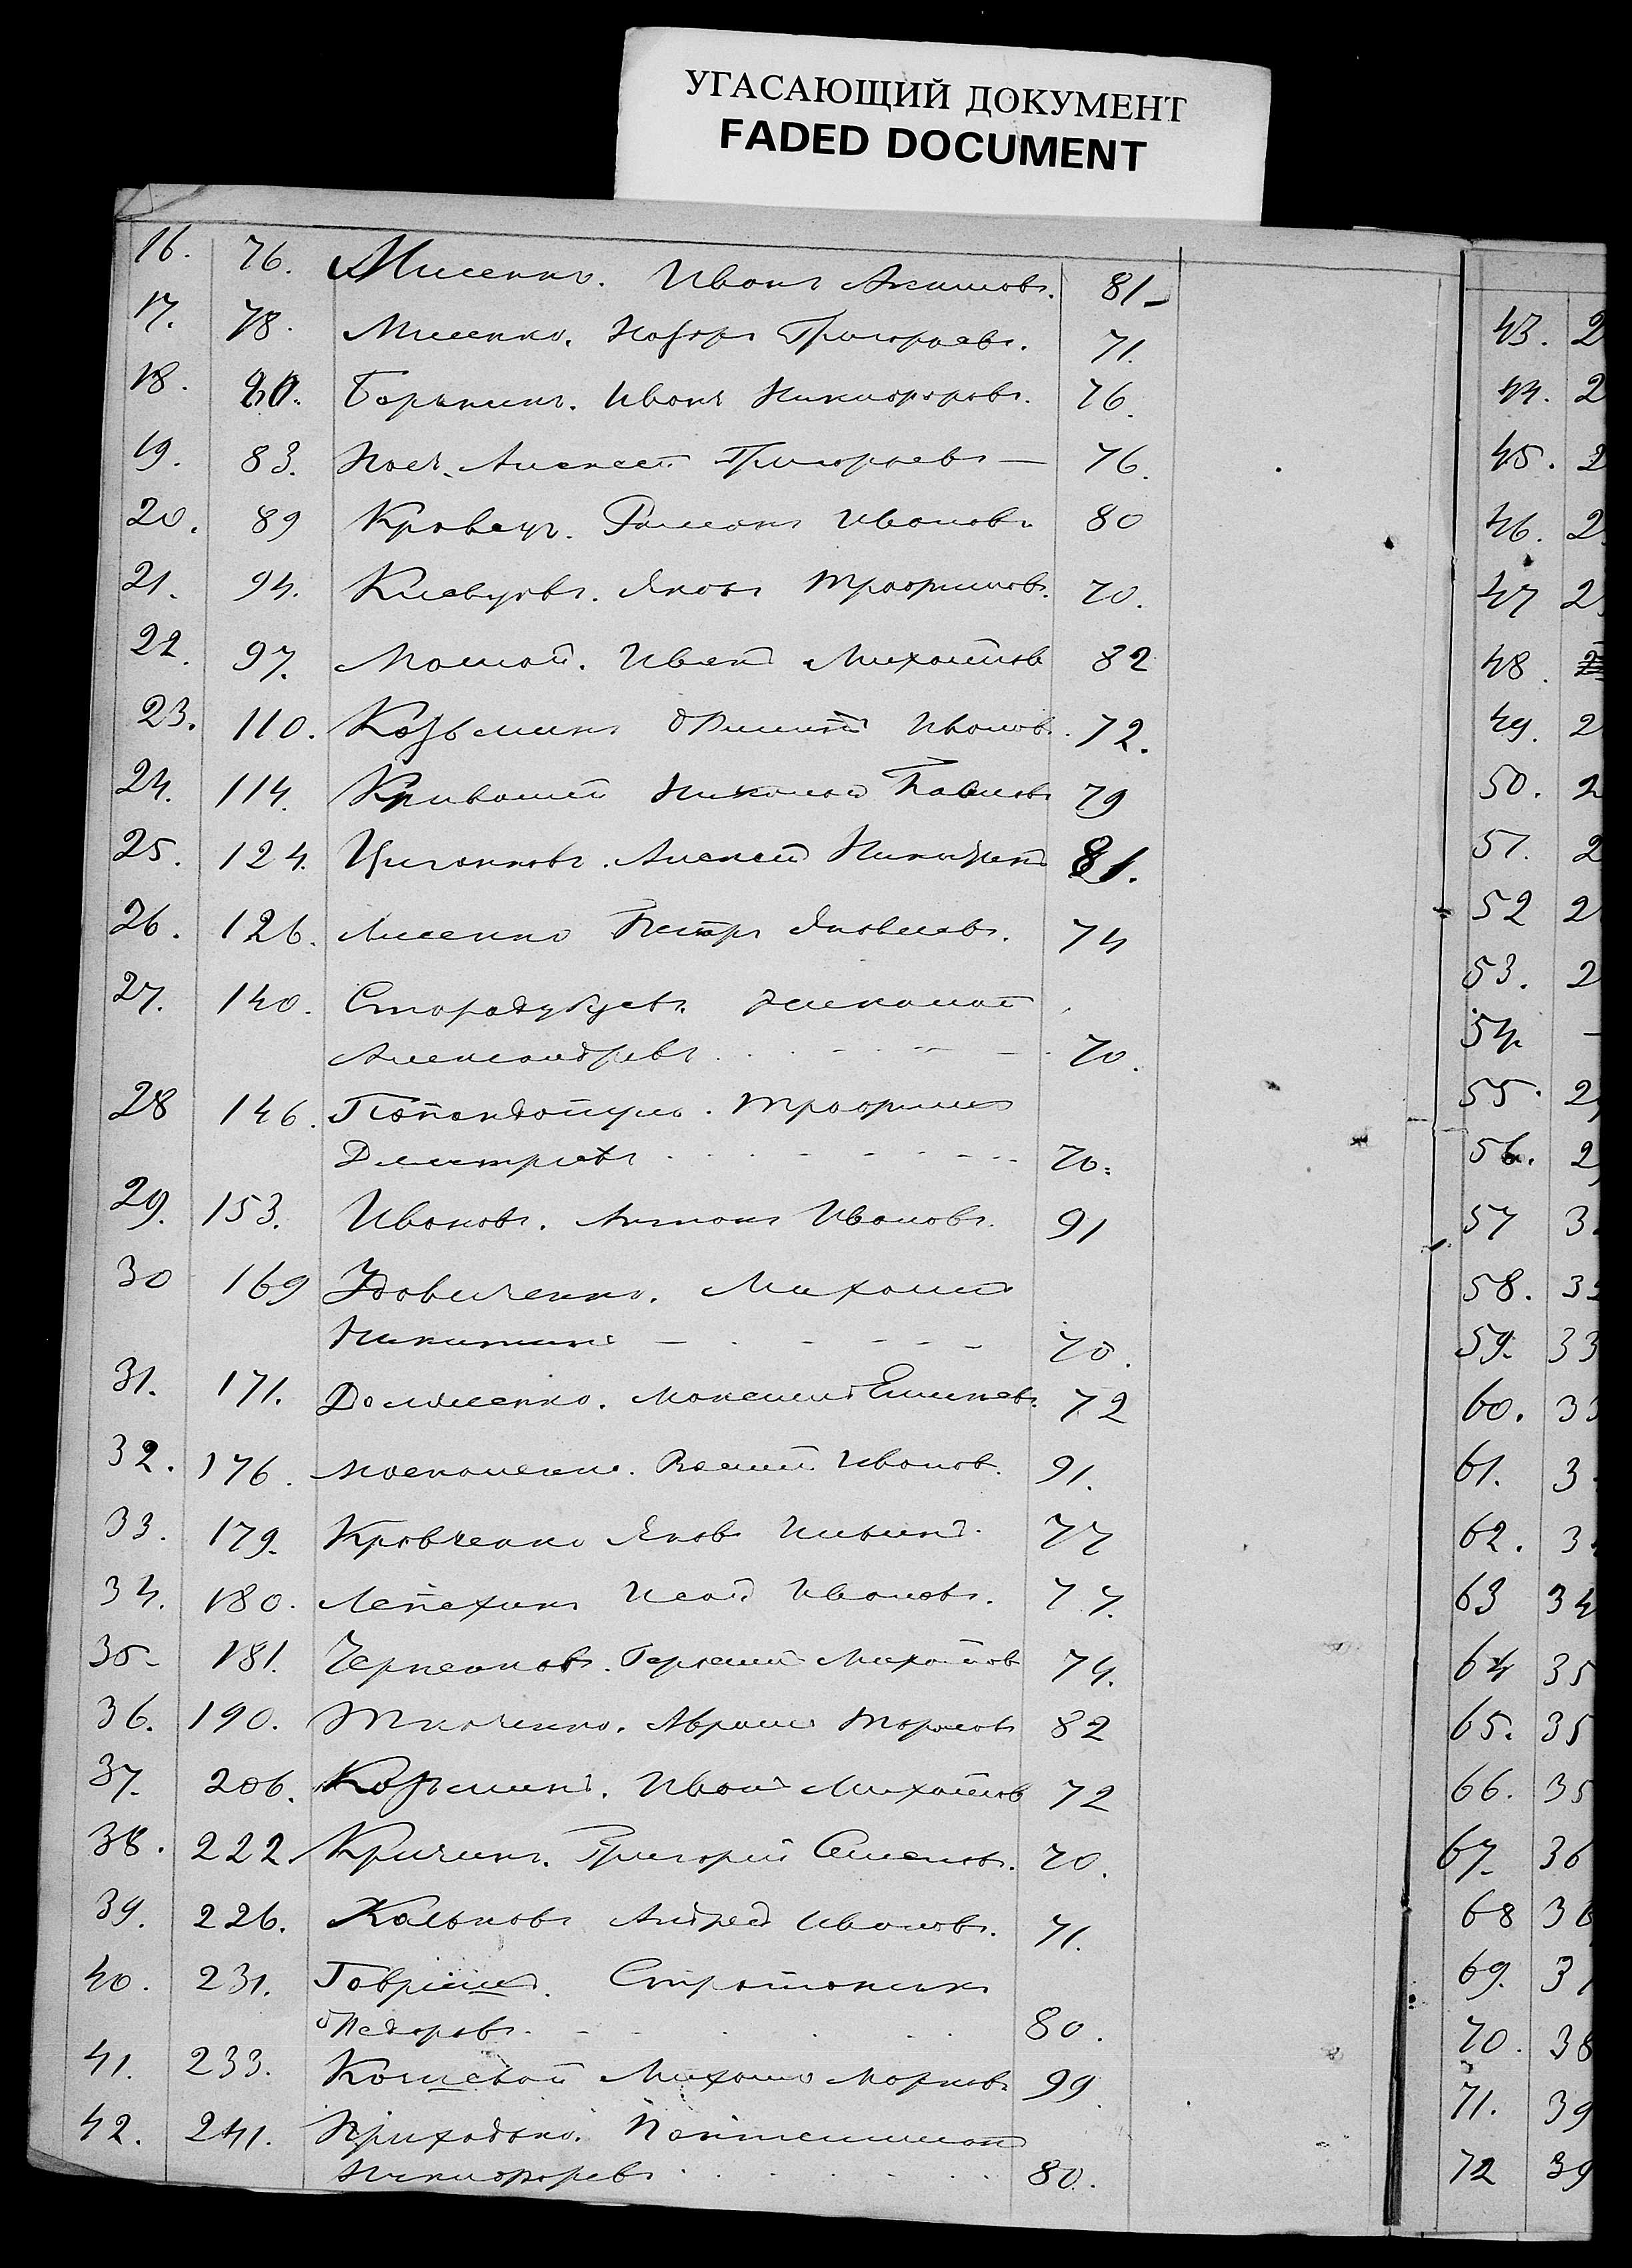 УГАСАЮЩИЙ ДОКУМЕНТ
FADED DOCUMENT
16. 76. Мисенко. Иванъ Акимовъ. 81
17. 78. Мисенко. Назаръ Григорьевъ. 71.
18. 80. Иванъ Никифоровъ. 76.
19. 83. Алексей Григорьевъ — 76.
20. 89 Кравецъ. Романъ Ивановъ 80
21. 94. Яковъ Трофимовъ. 70.
22. 97. Мамай. Михайловъ 82
23. 110. Козьминъ Филиппъ Ивановъ. 72.
24. 114. Кривошей Николай Павловъ 79
25. 124. Цыганковъ. Алексей 81.
26. 126. Лисенко Петръ Яковлевъ. 74
27. 140. Стародубцевъ. Николай
Александровъ 70.
28 146. Попандопуло. Трофимъ
Дмитріевъ 70.
29. 153. Ивановъ. Антонъ Ивановъ. 91
30 169 Удовиченко. Михаилъ
Никитинъ 70.
31. 171. Максимъ 72
32. 176. Москаленко. Ивановъ. 91.
33. 179. Кравченко Яковъ Ильинъ. 77
34. 180. Лепехинъ Исай Ивановъ. 77.
35. 181. Михайловъ 74.
36. 190. Ткаченко. Абрамъ 82
37. 206. Козьминъ. Иванъ Михайловъ 72
38. 222 Кричинъ. Григорій Семеновъ. 70.
39. 226. Кальновъ Андрей Ивановъ. 71.
40. 231. Гавришъ.
Федоровъ. 80.
41. 233. Кошевой Михаилъ Марковъ 99.
42. 241. Приходько. Пантелимонъ
Никифоровъ 80.
43. 2
44. 2
45. 2
46. 2
47 2
48. 2
49. 2
50. 2
51. 2
52 2
53. 2
54 -
55. 2
56. 2
57 3
58. 32
59. 33
60. 33
61. 3
62. 3
63 34
64 35
65. 35
66. 35
67. 36
68 36
69. 37
70. 38
71. 39
72 39